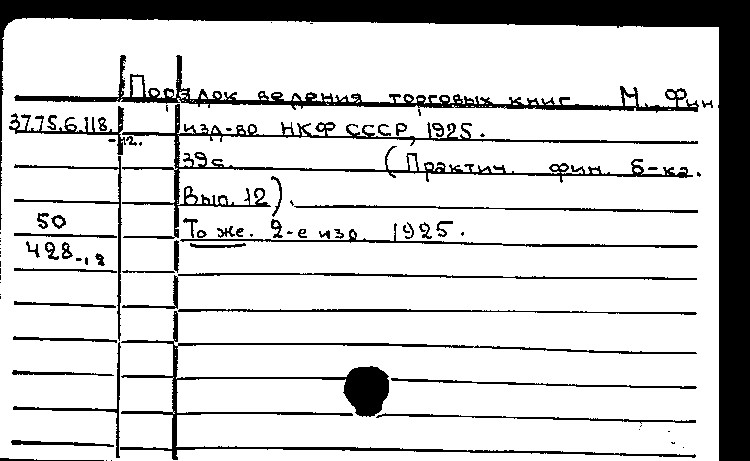 Порядок ведения торговых книг. М., Фин.
37.75.6.118.
-12.
изд-во НКФ СССР, 1925.
39с. (Практич. фин. б-ка.
Вып. 12).
50
428-12
То же. 2-е изд. 1925.